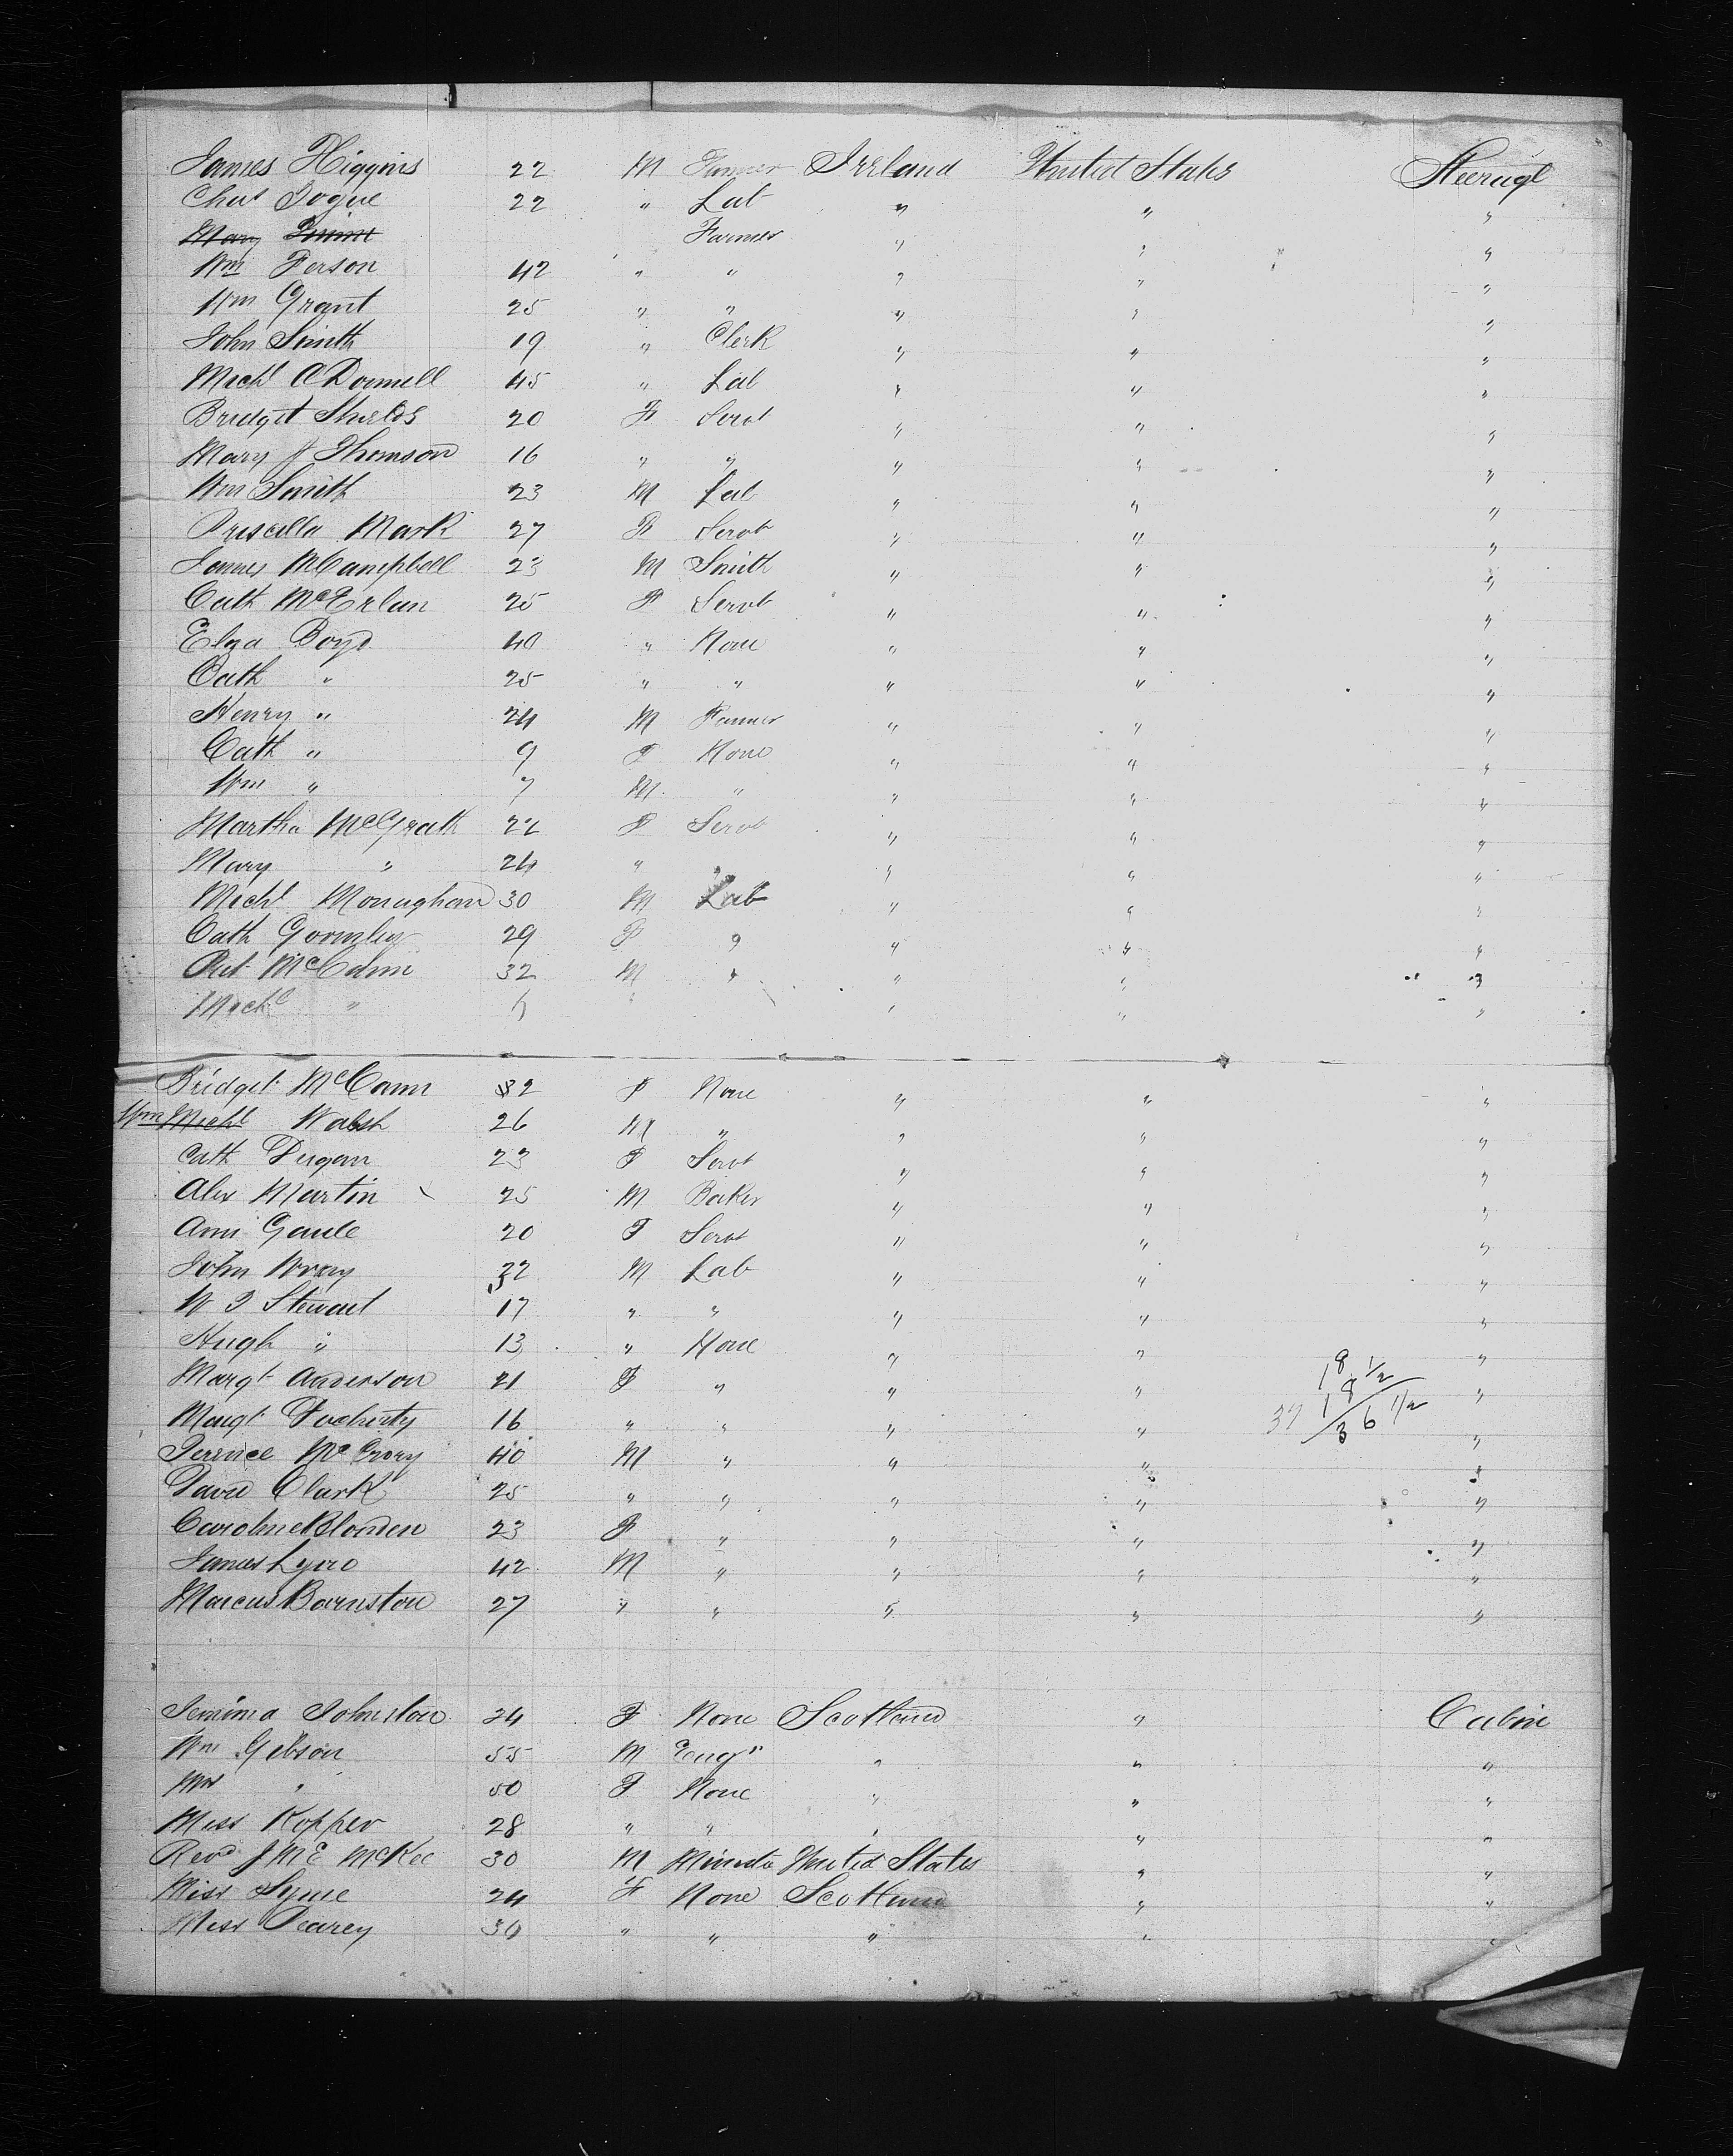 James Higgins 22 M Farmer Ireland United States Steerage
Chas Bogue 22 " Lab " " "
Mary Farmer " " "
Wm Ferson 42 " " " " "
Wm Grant 25 " " " " "
John Smith 19 " Clerk " " "
Michl O'Donnell 45 " Lab " " "
Bridget Shields 20 F Servt " " "
Mary J Thomson 16 " " " " "
Wm Smith 23 M Lab " " "
Priscilla Mark 27 F Servt " " "
James McCampbell 23 M Smith " " "
Cath McErlan 25 F Servt " " "
Eliza Boyd 40 " None " " "
Cath " 25 " " " " "
Henry " 24 M Farmer " " "
Cath " 9 F None " " "
Wm " 7 M " " " "
Martha McGrath 22 F Servt " " "
Mary " 24 " " " " "
Michl Monaghan 30 M Lab " " "
Cath Gormley 29 F " " " "
Pat McCann 32 M " " " "
Michl " " " "
Bridget McCann 32 F None " " "
Wm Michl Walsh 26 M " " " "
Cath Dugan 23 F Servt " " "
Alex Martin 25 M Baker " " "
Ann Gaule 20 F Servt " " "
John Wray 32 M Lab " " "
W J Stewart 17 " " " " "
Hugh " 13 " None " " "
Margt Anderson 21 F " " " "
18 1/2
Margt Docherty 16 " " " " "
37 18
36 1/2
Terence McCrory 40 M " " " "
David Clark 25 " " " " "
Caroline Blomen 23 F " " " "
James Lynd 42 M " " " "
Marcus Barnston 27 " " " " "
Jemima Johnston 34 F None Scotland " Cabin
Wm Gibson 55 M Engr " " "
Mrs " 50 F None " " "
Miss Kopper 28 " " " " "
Revd J McE McKee 30 M Minister United States " "
Miss Syme 24 F None Scotland " "
Miss Pearey 30 " " " " "